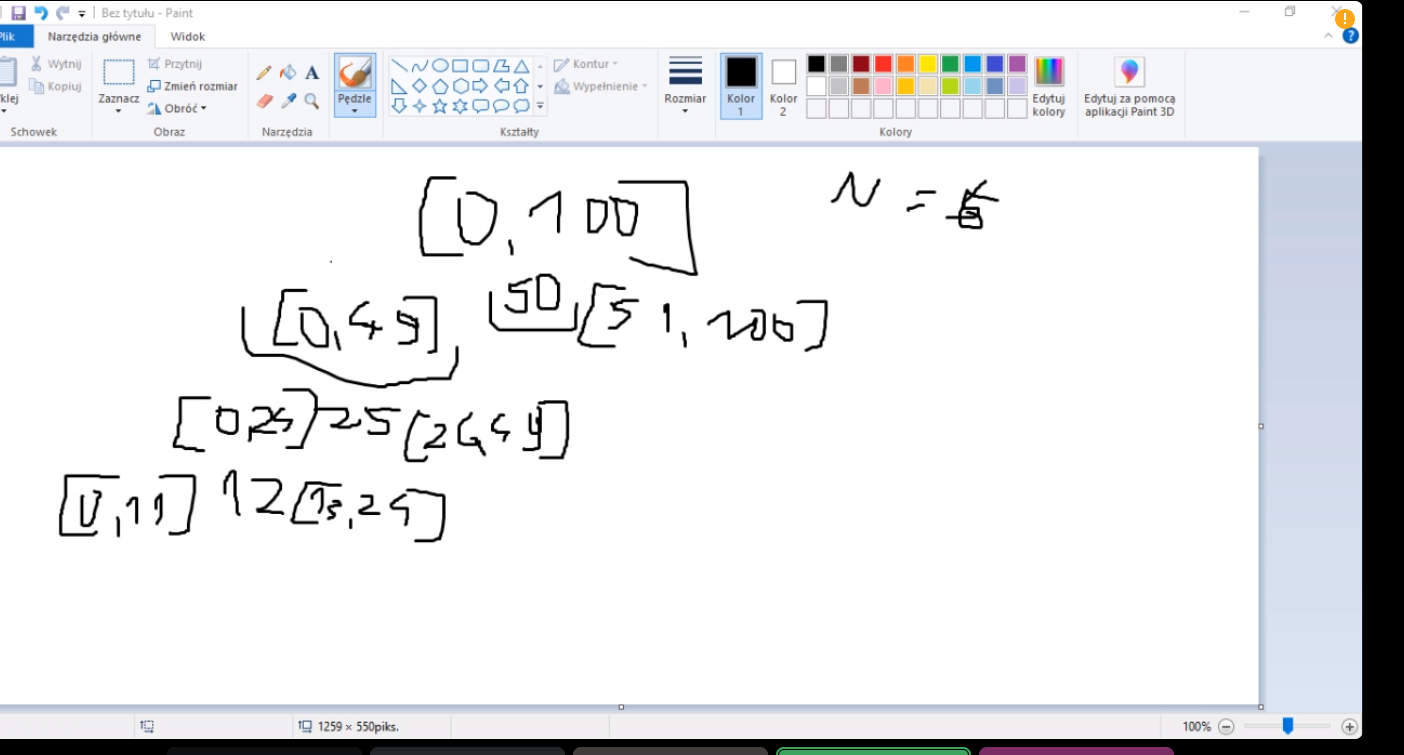 Bez tytułu - Paint
Plik Narzędzia główne Widok
Wytnij
Kopiuj
Wklej
Schowek
Zaznacz
Przytnij
Zmień rozmiar
Obróć
Obraz
A
Narzędzia
Pędzle
Kontur
Wypełnienie
Kształty
Rozmiar
Kolor 1
Kolor 2
Edytuj kolory
Kolory
Edytuj za pomocą aplikacji Paint 3D
[0,100] N =
[0,49] 50 [51,100]
[0,24] 25 [26,49]
[0,11] 12 [13,24]
1259 × 550piks. 100%